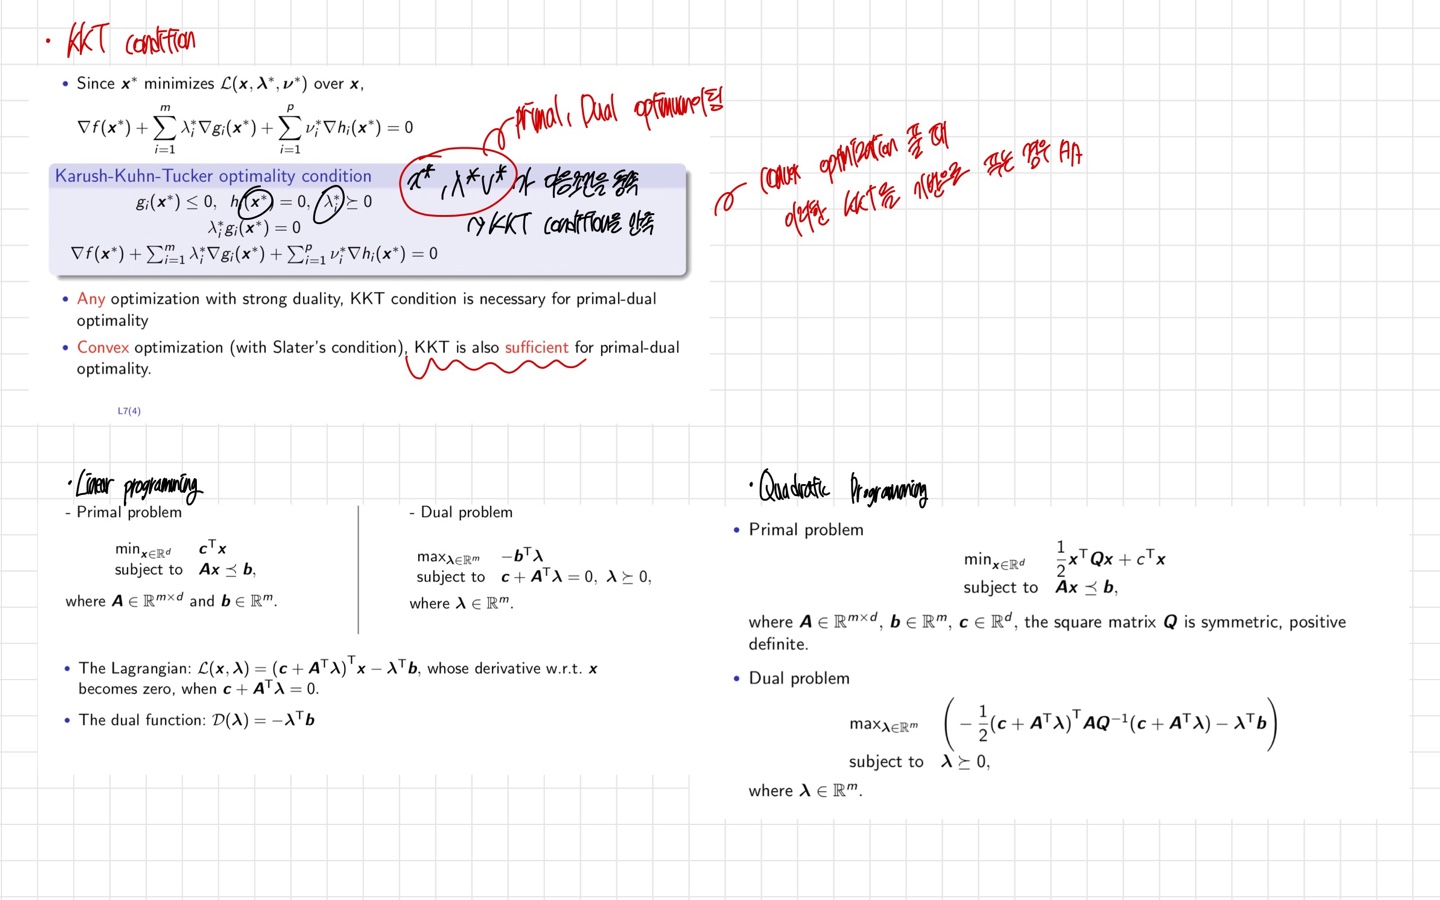 • KKT condition
• Since x* minimizes ℒ(x, λ*, ν*) over x,
∇f(x*) + ∑_{i=1}^{m} λ_i*∇g_i(x*) + ∑_{i=1}^{p} ν_i*∇h_i(x*) = 0
primal, Dual optimum이 됨
Karush-Kuhn-Tucker optimality condition
g_i(x*) ≤ 0, h(x*) = 0, λ_i* ⪰ 0
λ_i*g_i(x*) = 0
∇f(x*) + ∑_{i=1}^{m} λ_i*∇g_i(x*) + ∑_{i=1}^{p} ν_i*∇h_i(x*) = 0
x*, λ* ν* 가 다음조건을 충족
→ KKT condition을 만족
convex optimization 풀 때
이러한 KKT를 기반으로 푸는 경우 多多
• Any optimization with strong duality, KKT condition is necessary for primal-dual
optimality
• Convex optimization (with Slater's condition), KKT is also sufficient for primal-dual
optimality.
L7(4)
• Linear programming
- Primal problem
min_{x∈ℝ^d} c^⊤x
subject to Ax ⪯ b,
where A ∈ ℝ^{m×d} and b ∈ ℝ^m.
- Dual problem
max_{λ∈ℝ^m} −b^⊤λ
subject to c + A^⊤λ = 0, λ ⪰ 0,
where λ ∈ ℝ^m.
• The Lagrangian: ℒ(x, λ) = (c + A^⊤λ)^⊤x − λ^⊤b, whose derivative w.r.t. x
becomes zero, when c + A^⊤λ = 0.
• The dual function: 𝒟(λ) = −λ^⊤b
• Quadratic Programming
• Primal problem
min_{x∈ℝ^d} 1/2 x^⊤Qx + c^⊤x
subject to Ax ⪯ b,
where A ∈ ℝ^{m×d}, b ∈ ℝ^m, c ∈ ℝ^d, the square matrix Q is symmetric, positive
definite.
• Dual problem
max_{λ∈ℝ^m} (− 1/2 (c + A^⊤λ)^⊤AQ^{−1}(c + A^⊤λ) − λ^⊤b)
subject to λ ⪰ 0,
where λ ∈ ℝ^m.